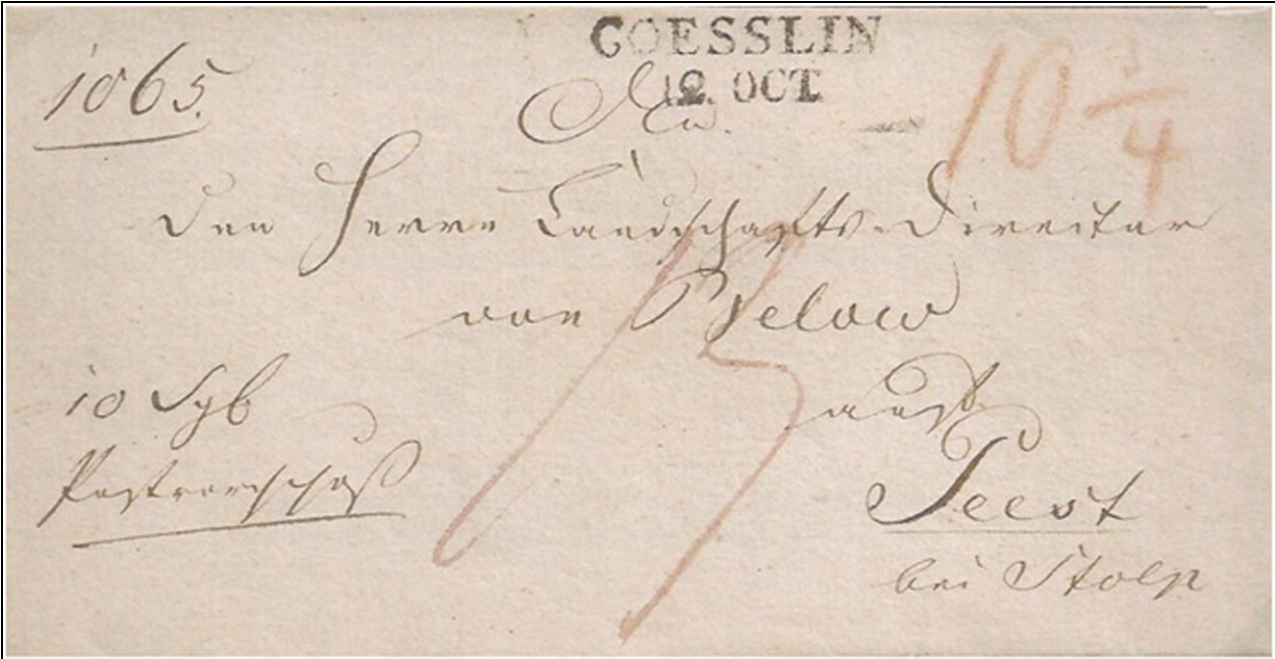 COESSLIN
12. OCT.
1065.
An
10 3/4
den Herrn Landschafts-Director
von Below
10 Sgb
Postvorschuß
auf
Peest
bei Stolp